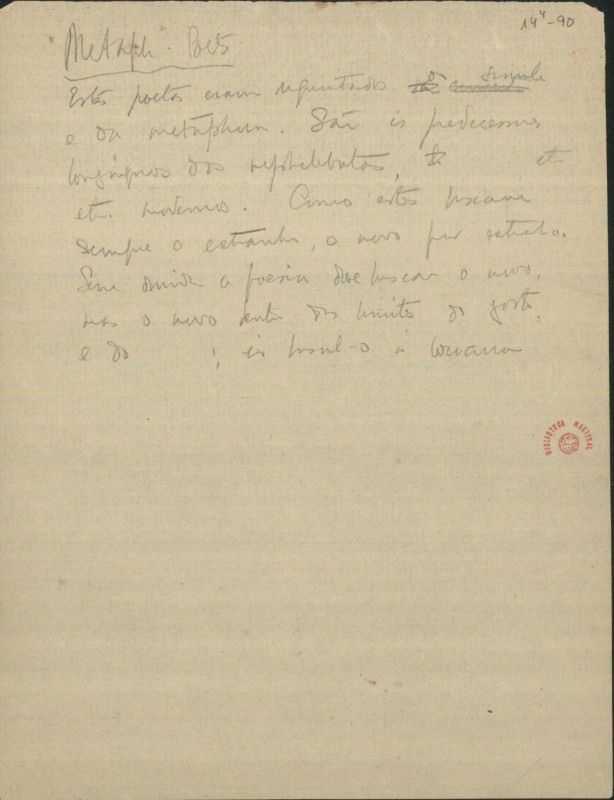 14⁴-90
"Metaph". Poets
Estes poetas eram requintados do simile
e da metaphora. São os predecessores
longinquos dos nephelibatas, etc
etc. modernos. Como estes buscavam
sempre o extranho, o novo por extranho.
Sem duvida a poesia deve buscar o novo,
mas o novo dentro dos limites do gosto,
e do ; ir buscal-o à loucura
BIBLIOTECA NACIONAL